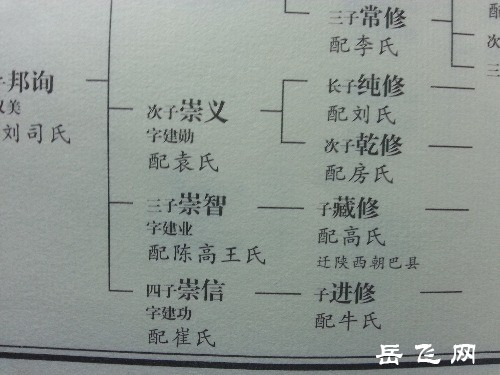 三子常修
配李氏
次
三
邦询
义美
刘司氏
次子崇义
字建勋
配袁氏
长子纯修
配刘氏
次子乾修
配房氏
三子崇智
字建业
配陈高王氏
子藏修
配高氏
迁陕西朝巴县
四子崇信
字建功
配崔氏
子进修
配牛氏
岳飞网